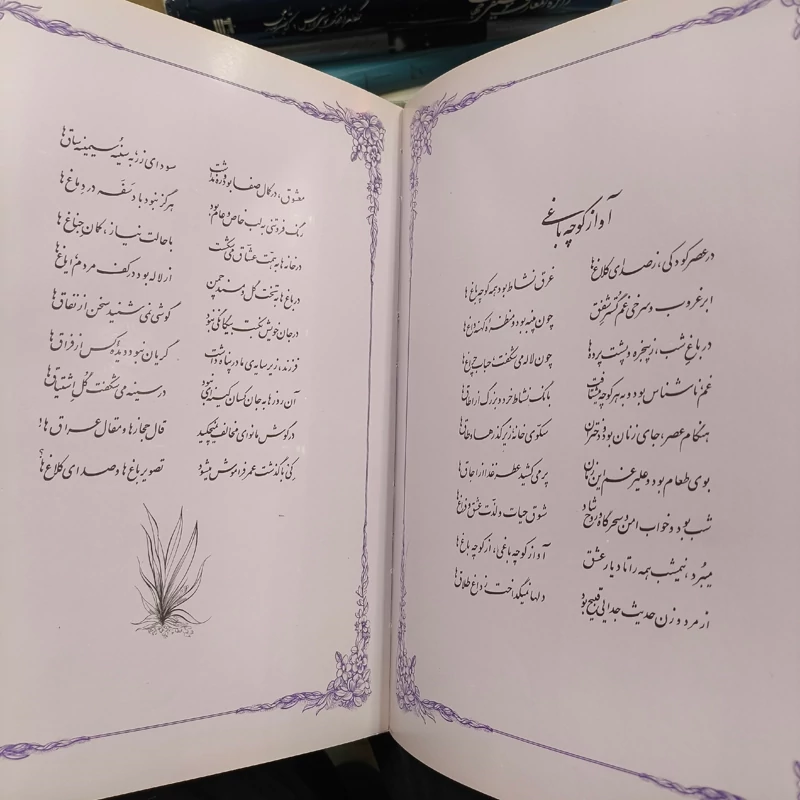 آواز کوچه باغی
در عصر کودکی، ز صدای کلاغ‌ها
غرق نشاط بود همه کوچه باغ‌ها
ابر غروب و سرخی غم گستر شفق
چون پنبه بود و منظره داغ‌ها
در باغ شب، ز پنجره و پشت پرده‌ها
چون لاله می شکفت حباب چراغ‌ها
غم ناشناس بود و به هر کوچه میشتافت
بانگ نشاط خرد و بزرگ از اطاق‌ها
هنگام عصر، جای زنان بود و دختران
سکوی خانه زیر گذرها و طاق‌ها
بوی طعام بود و علیرغم این زمان
پر می کشید عطر غذا از اجاق‌ها
شب بود و خواب امن و سحرگاه و روح شاد
شوق حیات و لذت عشق و فراغ‌ها
میبرد، نیمشب همه را تا دیار عشق
آواز کوچه باغی، از کوچه باغ‌ها
از مرد و زن حدیث جدایی قبیح بود
دلها نمیگداخت ز داغ طلاق‌ها
معشوق، در کمال صفا بود و ره نداشت
سودای زر به سینه سیمینه ساق‌ها
رنگ فروتنی به لب خاص و عام بود
هرگز نبود باد تفرعن در دماغ‌ها
در خانه‌ها به همت عشاق می شکست
با حالت نیاز، کمان جناغ‌ها
در باغ‌ها به تخت گل و مسند چمن
از لاله بود در کف مردم ایاغ‌ها
در جان خویش نکبت بیگانگی نبود
گوشی نمی شنید سخن از نفاق‌ها
فرزند، زیر سایه ی ما در پناه داشت
گریان نبود دیده کس از فراق‌ها
آن روزها به جان کسان کینه‌ای نبود
در سینه می شکفت گل اشتیاق‌ها
در گوش ما نوای مخالف نمیچکید
قال حجازها و مقال عراق‌ها!
کی با گذشت عمر فراموش میشود
تصویر باغ‌ها و صدای کلاغ‌ها؟